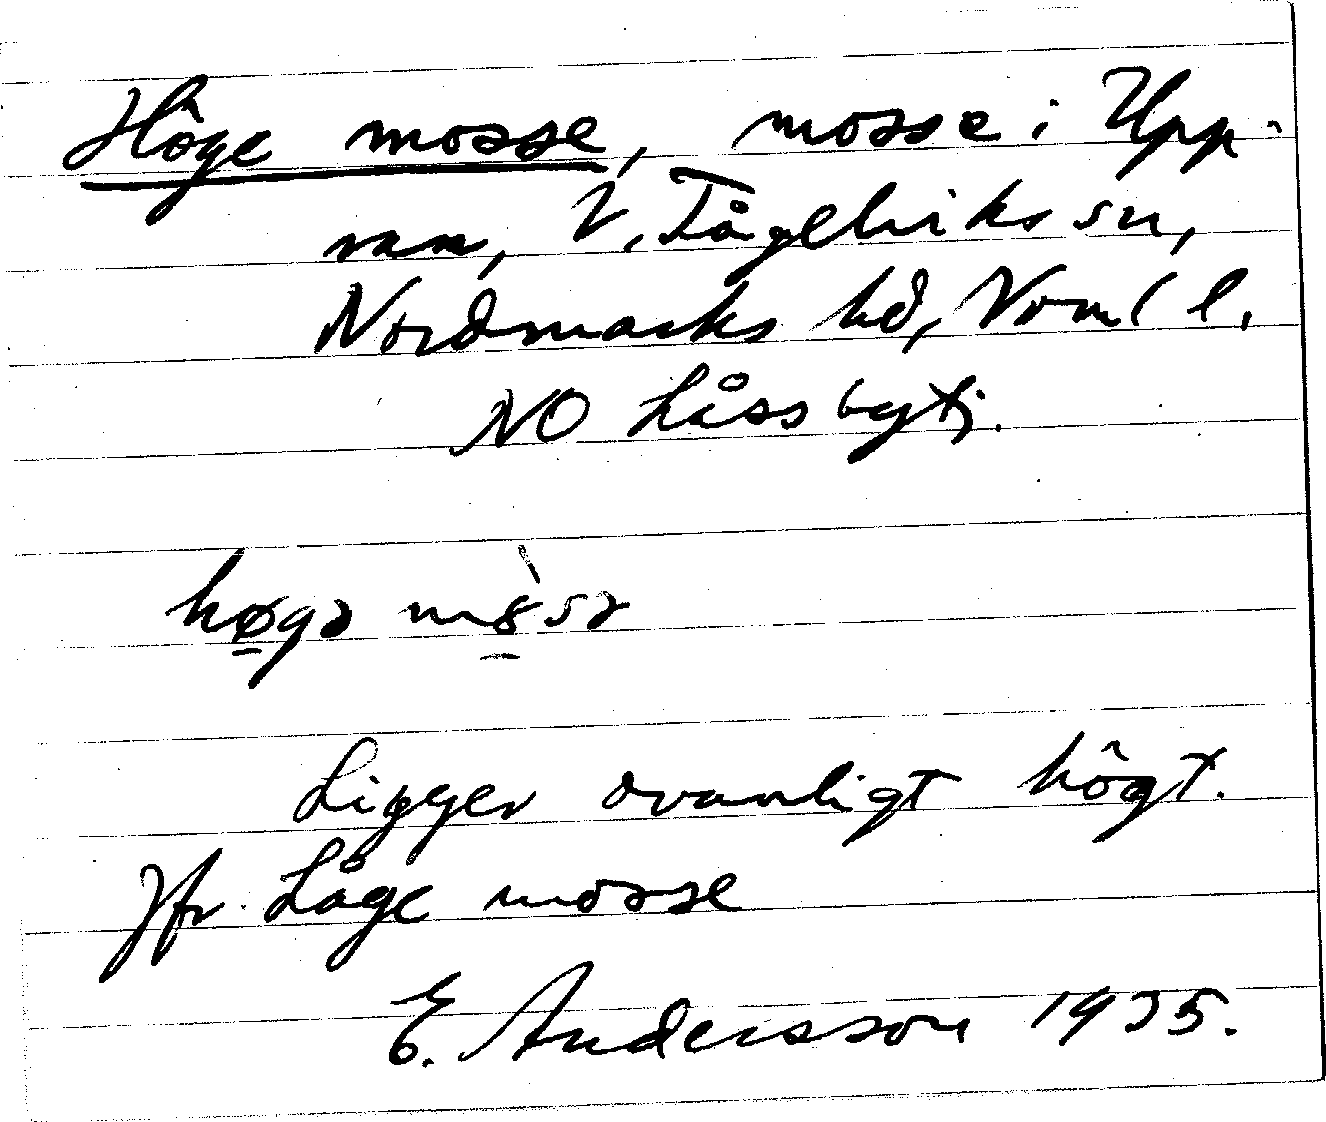 Höge mosse, mosse i Upp-
ran, V. Fågelviks sn,
Nordmarks hd, Vrml l.
NO Låssbytj.
høgə mòsə
Ligger ovanligt högt.
Jfr. Låge mosse
E. Andersson 1935.